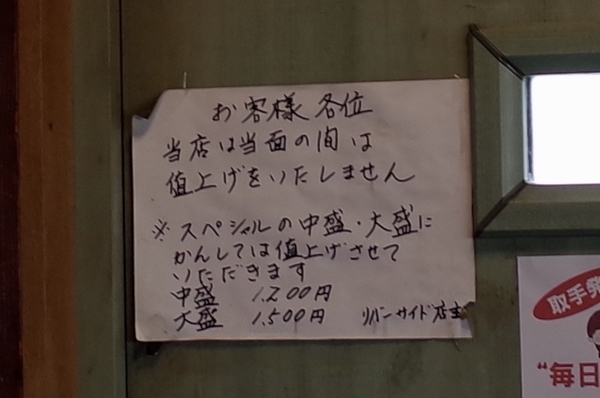 お客様各位
当店は当面の間は
値上げをいたしません
※スペシャルの中盛・大盛に
かんしては値上げさせて
いただきます
中盛 1.200円
大盛 1.500円 リバーサイド店主
取手発
"毎日